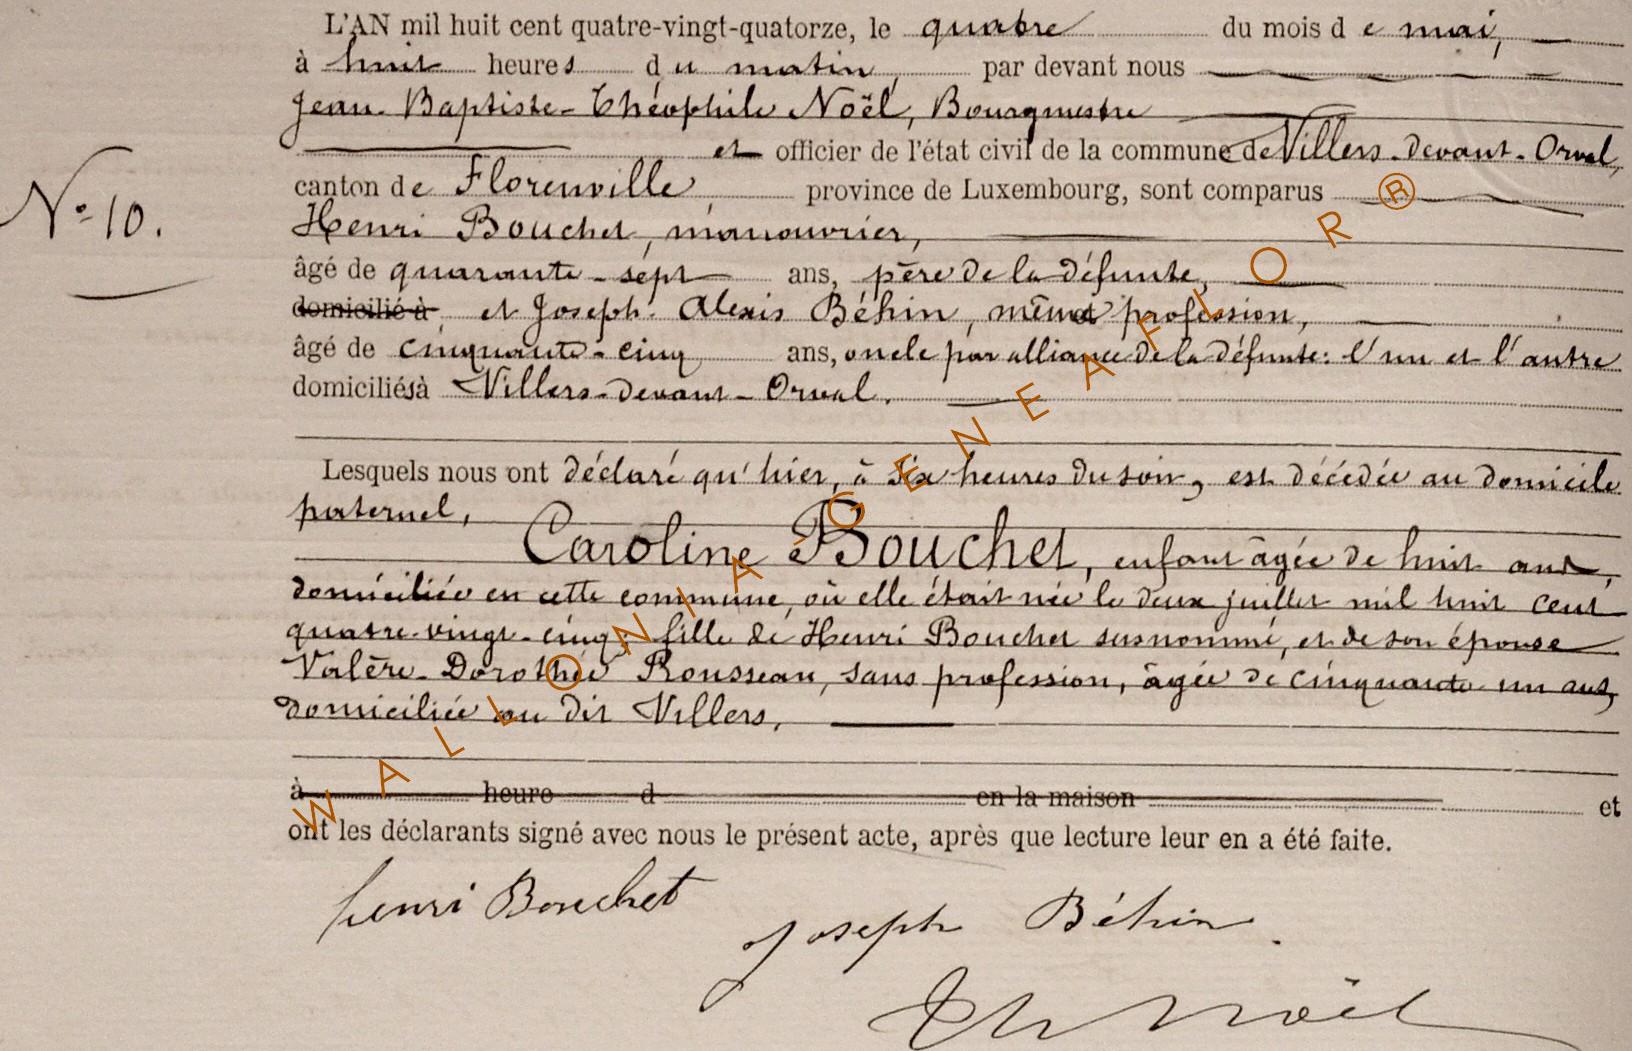 L'AN mil huit cent quatre-vingt-quatorze, le quatre du mois de mai,
à huit heures du matin, par devant nous
Jean-Baptiste-Théophile Noël, Bourgmestre
et officier de l'état civil de la commune de Villers-devant-Orval,
canton de Florenville, province de Luxembourg, sont comparus
N° 10.
Henri Bouchet, manouvrier,
âgé de quarante-sept ans, père de la défunte,
domicilié à et Joseph-Alexis Béhin, même profession,
âgé de cinquante-cinq ans, oncle par alliance de la défunte: l'un et l'autre
domiciliés à Villers-devant-Orval.
Lesquels nous ont déclaré qu'hier, à six heures du soir, est décédée au domicile
paternel,
Caroline Bouchet, enfant âgée de huit ans,
domiciliée en cette commune, où elle était née le deux juillet mil huit cent
quatre-vingt-cinq; fille de Henri Bouchet susnommé, et de son épouse
Valère-Dorothée Rousseau, sans profession, âgée de cinquante-un ans,
domiciliée au dit Villers.
à heure d en la maison et
ont les déclarants signé avec nous le présent acte, après que lecture leur en a été faite.
henri Bouchet
Joseph Béhin.
Th Noël
WALLONIA-GENEAFLOR®